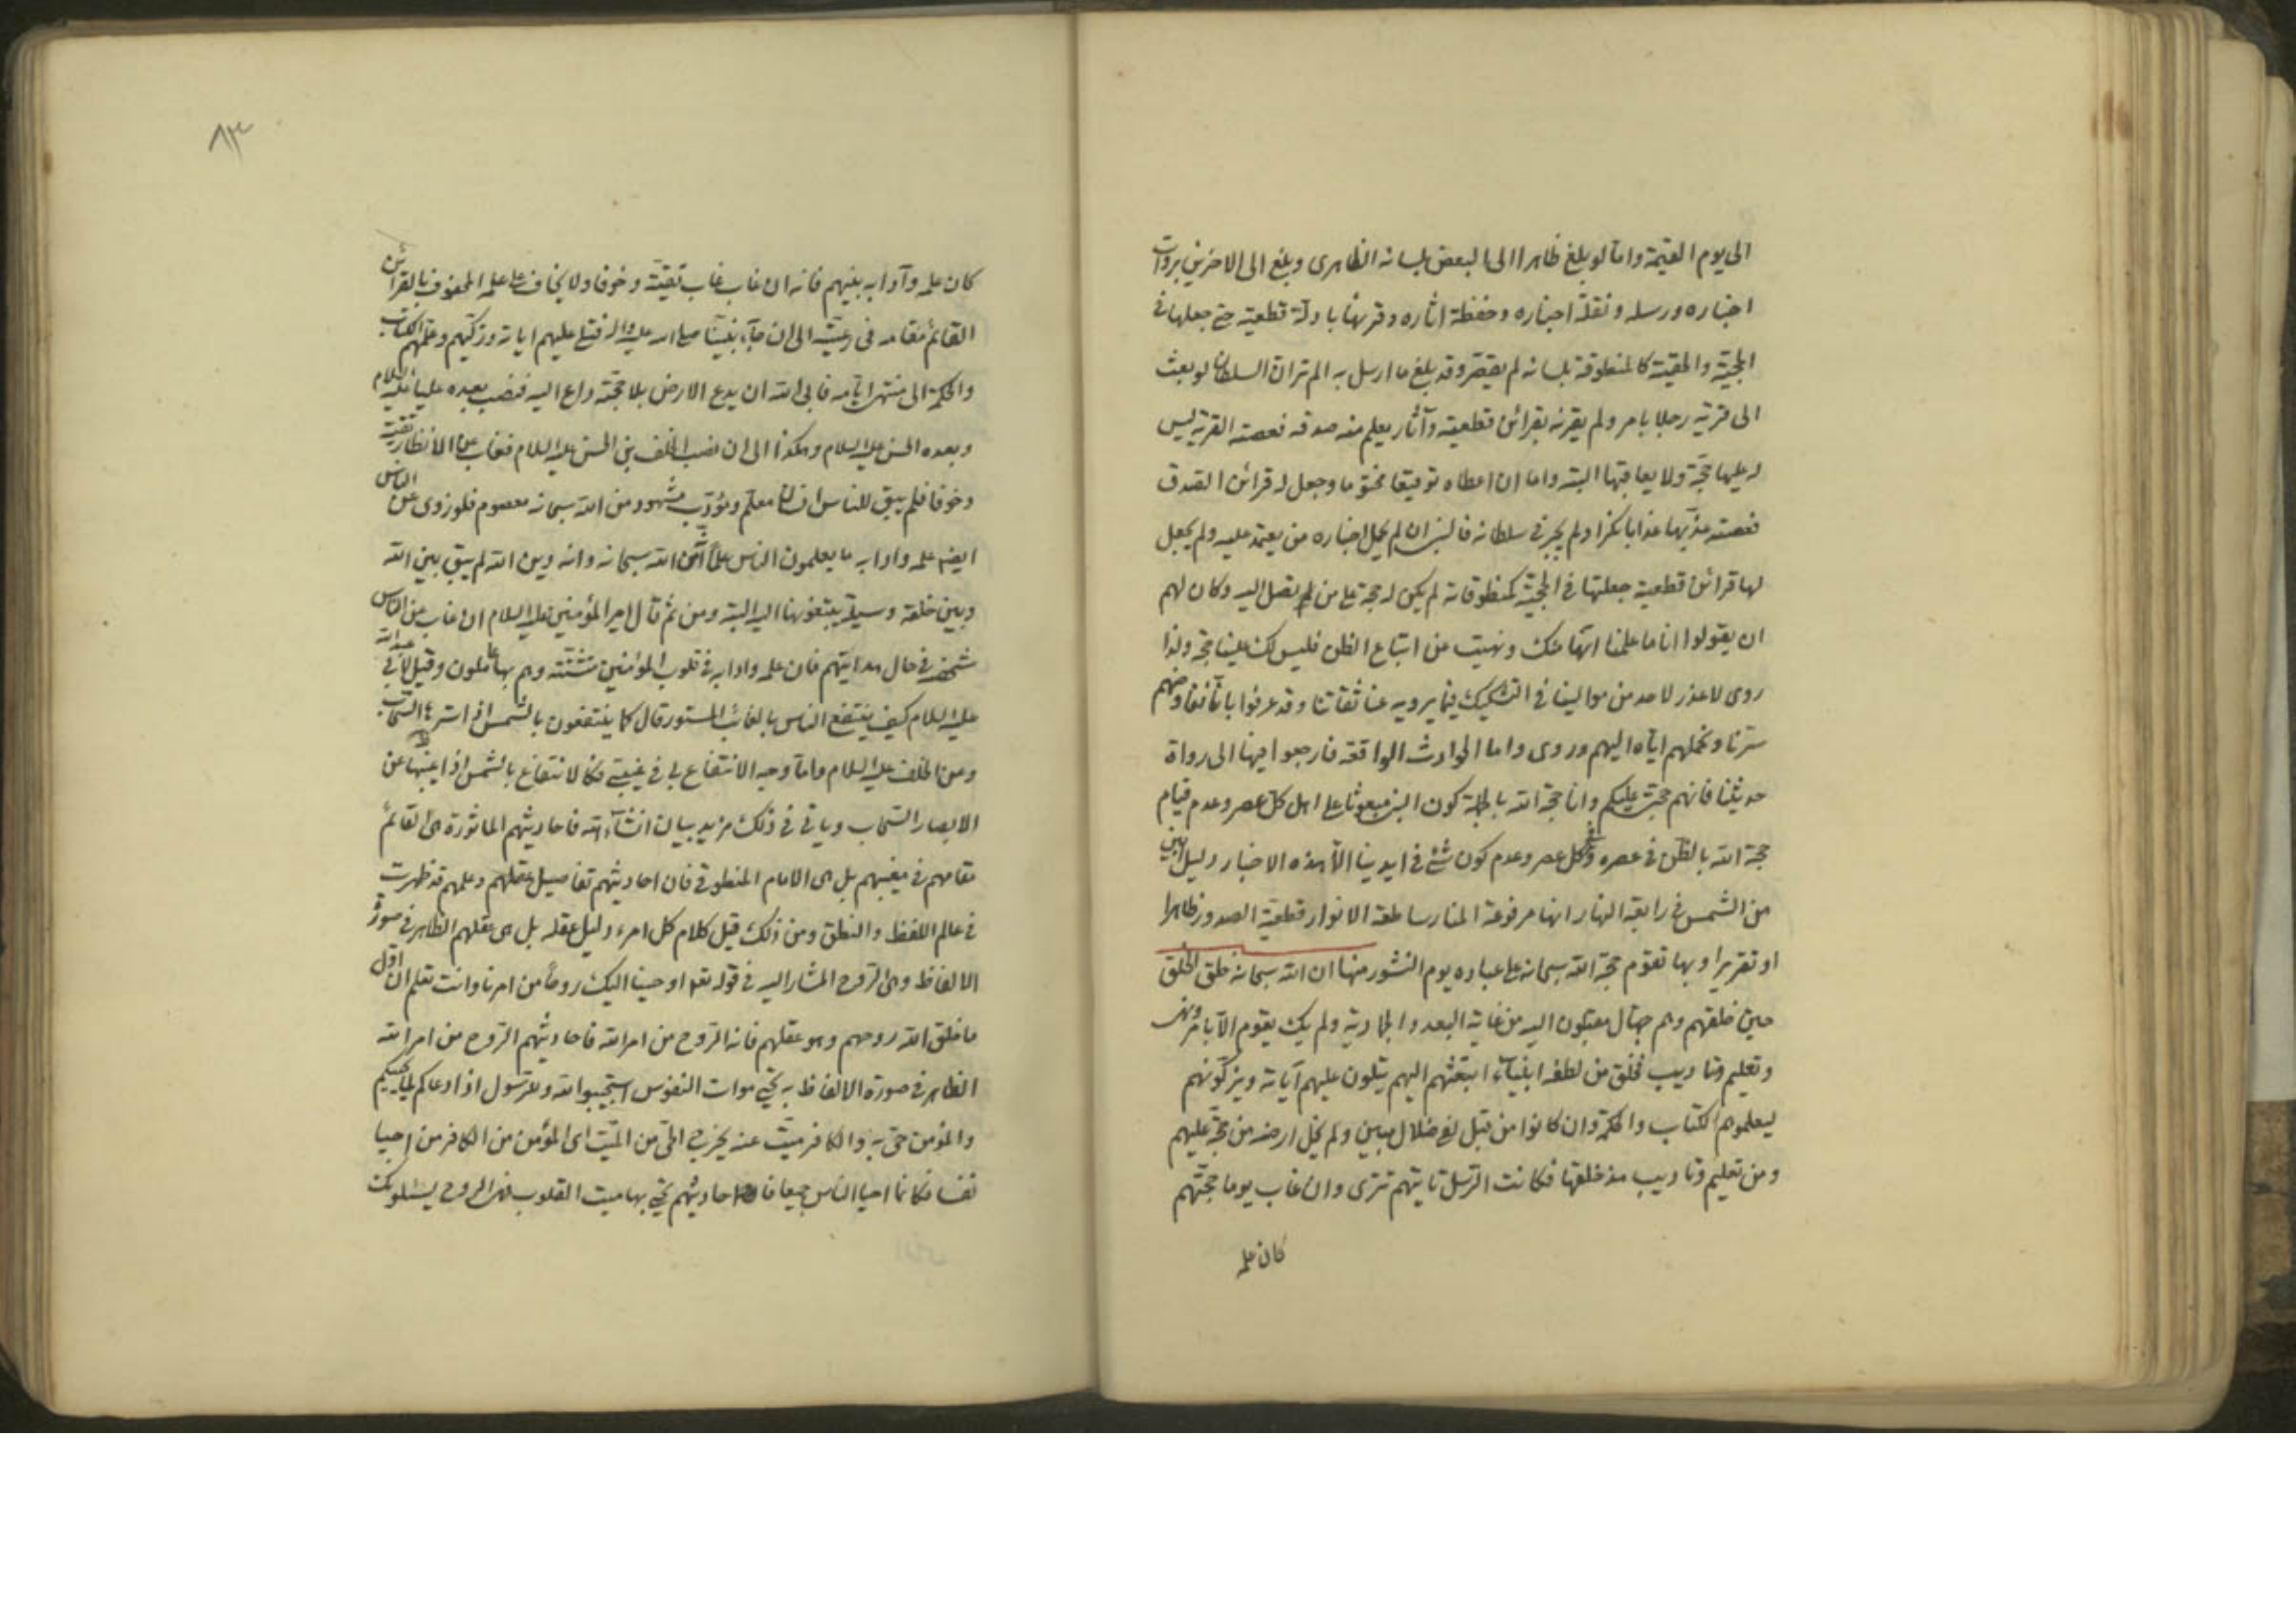 الى يوم القيمة واما لو بلغ ظاهرا الى البعض بلسانه الظاهرى وبلغ الى الاخرين بروات
اخباره ورسله ونقلة اخباره وحفظة اثاره وقرنها بادلة قطعية حتى جعلها فى
الحجية والحقية كالمنطوقة بلسانه لم يقصر وقد بلغ ما ارسل به الم تر ان السلطان لو بعث
الى قرية رجلا بامر ولم يقرنه بقرائن قطعية وآثار يعلم منه صدقه فعصته القرية ليس
له عليها حجة ولا يعاقبها البتة واما ان اعطاه توقيعا مختوما وجعل له قرائن الصدق
فعصته عذبها عذابا نكرا ولم يجر فى سلطانه فالنبى ان لم يحمل اخباره من يعتمد عليه ولم يجعل
لها قرائن قطعية جعلتها فى الحجية كمنطوقاته لم يكن له حجة على من لم يصل اليه وكان لهم
ان يقولوا انا ما علمنا انها منك ونهيت عن اتباع الظن فليس لك علينا حجة ولذا
روى لا عذر لاحد من موالينا فى التشكيك فيما يرويه عنا ثقاتنا وقد عرفوا بانا نفاوضهم
سرنا ونحملهم اياه اليهم وروى واما الحوادث الواقعة فارجعوا فيها الى رواة
حديثنا فانهم حجتى عليكم وانا حجة الله بالجملة كون النبى مبعوثا على اهل كل عصر وعدم قيام
حجة الله بالظن فى عصره وفى كل عصر وعدم كون شئ فى ايدينا الا هذه الاخبار دليل ابين
من الشمس فى رابعة النهار انها مرفوعة المنار ساطعة الانوار قطعية الصدور ظاهرا
او تقريرا وبها تقوم حجة الله سبحانه على عباده يوم النشور منها ان الله سبحانه خلق الخلق
حين خلقهم وهم جهال مقبلون اليه من غاية البعد والجمادية ولم يك يقوم الا بامر ونهى
وتعليم وتاديب فخلق من لطفه انبياء ابتعثهم اليهم يتلون عليهم آياته ويزكونهم
ليعلموهم الكتاب والحكمة وان كانوا من قبل لفى ضلال مبين ولم يخل ارضه من حجة عليهم
ومن تعليم وتاديب مذ خلقها فكانت الرسل تاتيهم تترى وان غاب يوما حجتهم
كان علمه
٨٣
كان علمه وآدابه بينهم فانه ان غاب غاب تقية وخوفا ولا يخاف على علمه المحفوف بالقرائن
القائم مقامه فى رعيته الى ان جاء نبينا صلى الله عليه واله فتلى عليهم اياته وزكيهم وعلمهم الكتاب
والحكمة الى منتهى ايامه فابى الله ان يدع الارض بلا حجة داع اليه فنصب بعده عليا عليه السلام
وبعده الحسن عليه السلام وهكذا الى ان نصب الخلف بن الحسن عليه السلام فغاب عن الانظار تقية
وخوفا فلم يبق للناس معلم ومؤدب مشهود من الله سبحانه معصوم فلو زوى عن الناس
ايضا علمه وادابه ما يعلمون الناس علما انه من الله سبحانه وانه دين الله لم يبق بين الله
وبين خلقه وسيلة يبتغونها اليه البتة ومن ثم قال امير المؤمنين عليه السلام ان غاب عن الناس
شخصه فى حال هدايتهم فان علمه وادابه فى قلوب المؤمنين مثبتة وهم بها عاملون وقيل لابى عبد الله
عليه السلام كيف ينتفع الناس بالغائب المستور قال كما ينتفعون بالشمس اذا سترها السحاب
وعن الخلف عليه السلام واما وجه الانتفاع بى فى غيبتى فكالانتفاع بالشمس اذا غيبها عن
الابصار السحاب وياتى فى ذلك مزيد بيان انشاء الله فاحاديثهم الماثورة هى القائم
مقامهم فى مغيبهم بل هى الامام المنطوقى فان احاديثهم تفاصيل عقلهم وعلمهم قد ظهرت
فى عالم اللفظ والنطق ومن ذلك قيل كلام كل امرء دليل عقله بل هى عقلهم الظاهر فى صورة
الالفاظ وهى الروح المشار اليه فى قوله تعالى اوحينا اليك روحا من امرنا وانت تعلم ان اول
ما خلق الله روحهم وهو عقلهم فانه الروح من امر الله فاحاديثهم الروح من امر الله
الظاهر فى صورة الالفاظ به يحيى موات النفوس استجيبوا لله وللرسول اذا دعاكم لما يحييكم
والمؤمن حى به والكافر ميت عنه يخرج الحى من الميت اى المؤمن من الكافر من احيا
نفسا فكانما احيا الناس جميعا فاحاديثهم يحيى بها ميت القلوب فهى الروح يسئلونك